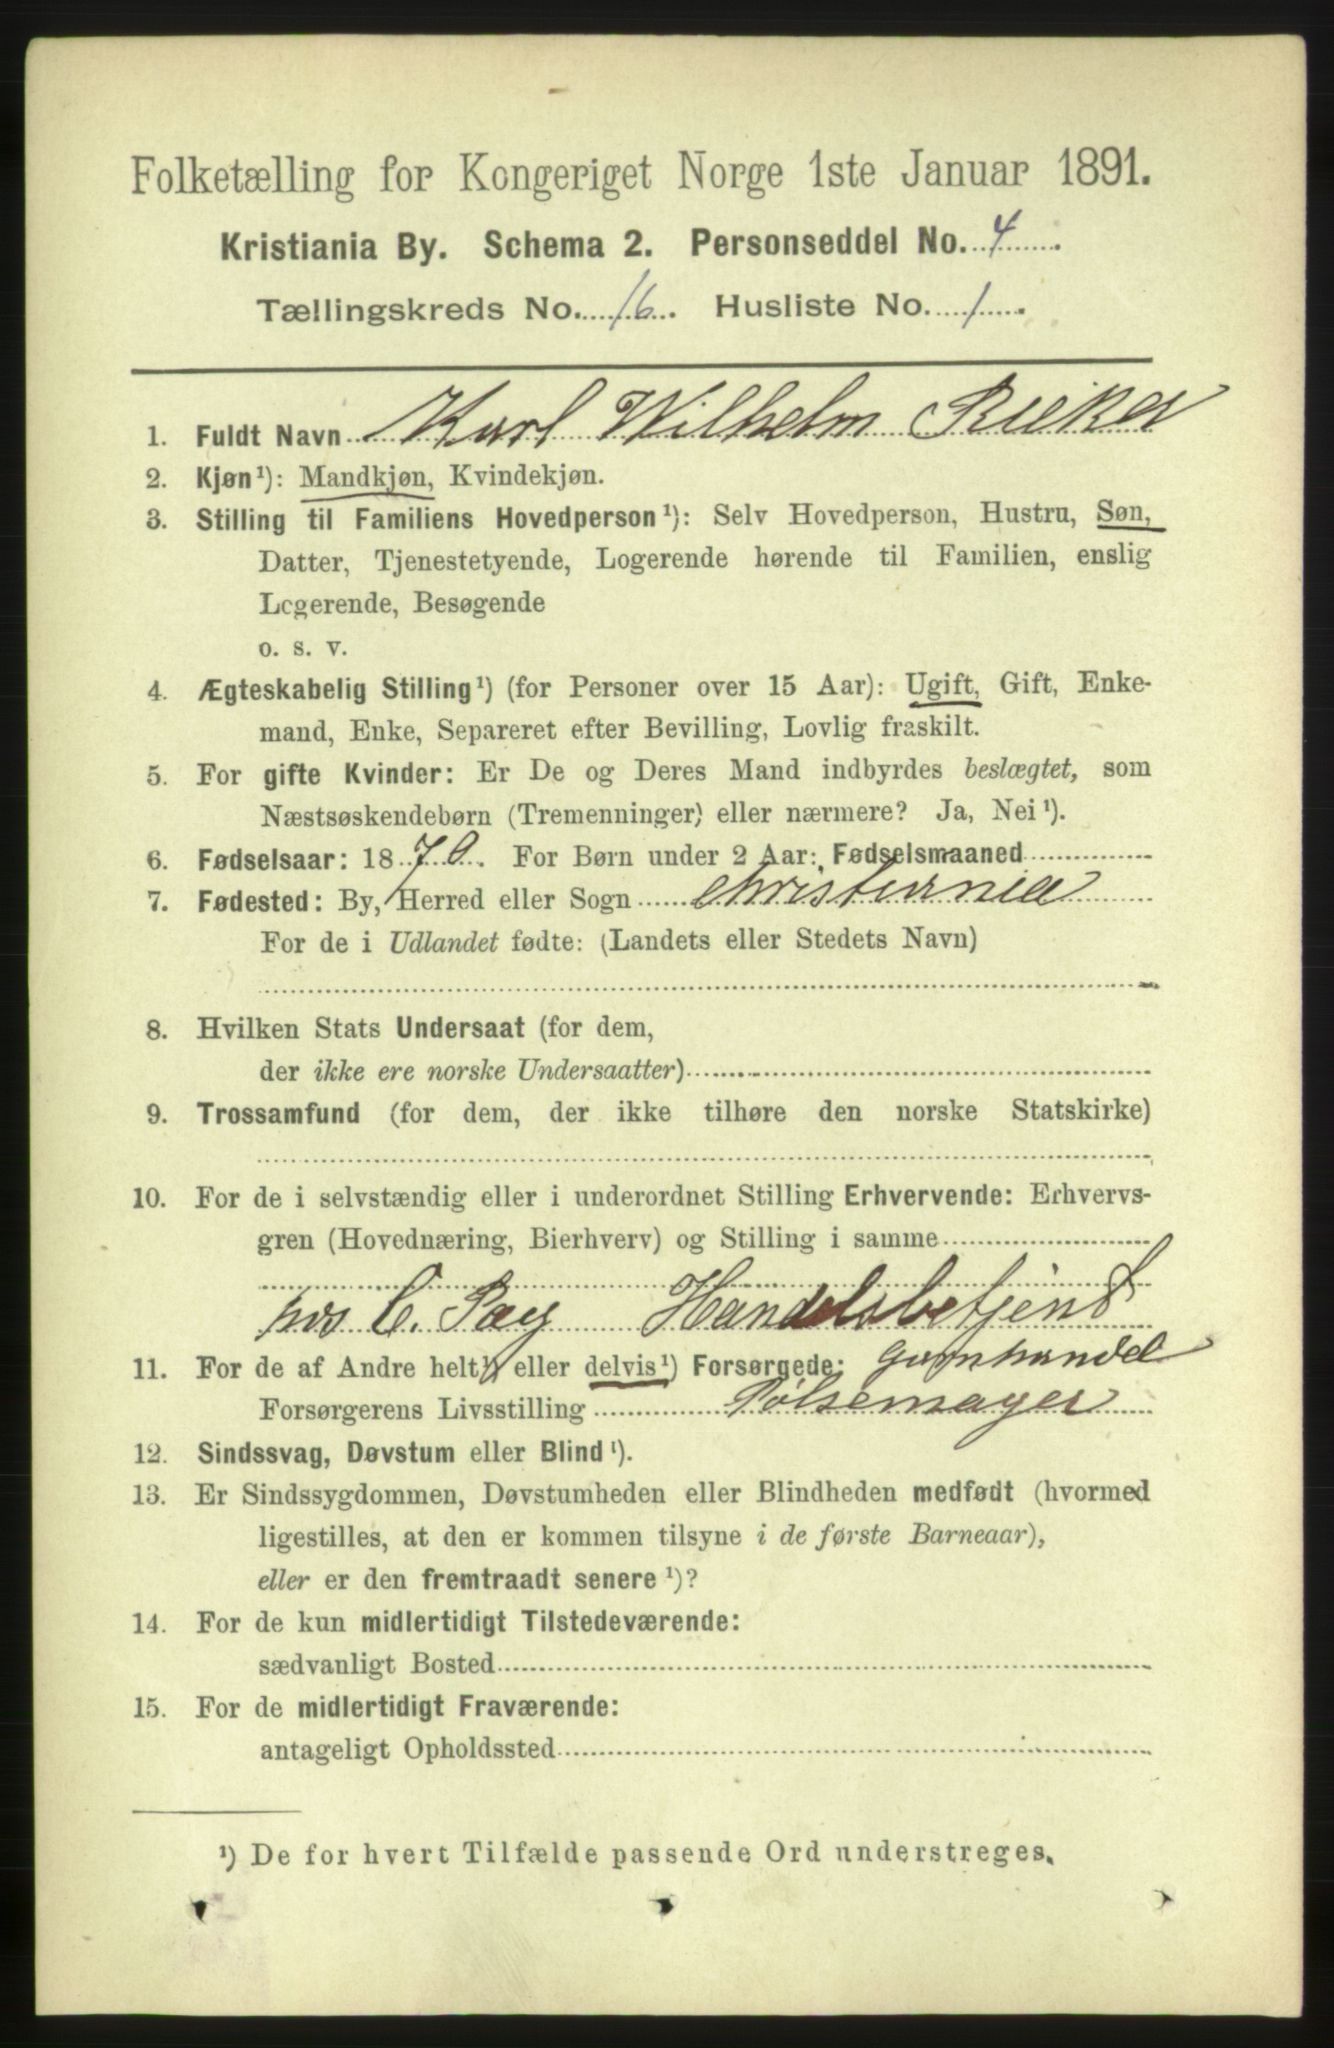 Folketælling for Kongeriget Norge 1ste Januar 1891.
Kristiania By. Schema 2. Personseddel No. 4
Tællingskreds No. 16. Husliste No. 1.
1. Fuldt Navn Karl Wilhelm Rieker
2. Kjøn¹): Mandkjøn, Kvindekjøn.
3. Stilling til Familiens Hovedperson¹): Selv Hovedperson, Hustru, Søn,
Datter, Tjenestetyende, Logerende hørende til Familien, enslig
Logerende, Besøgende
o. s. v.
4. Ægteskabelig Stilling¹) (for Personer over 15 Aar): Ugift, Gift, Enke-
mand, Enke, Separeret efter Bevilling, Lovlig fraskilt.
5. For gifte Kvinder: Er De og Deres Mand indbyrdes beslægtet, som
Næstsøskendebørn (Tremenninger) eller nærmere? Ja, Nei¹).
6. Fødselsaar: 1870. For Børn under 2 Aar: Fødselsmaaned
7. Fødested: By, Herred eller Sogn Christiania
For de i Udlandet fødte: (Landets eller Stedets Navn)
8. Hvilken Stats Undersaat (for dem,
der ikke ere norske Undersaatter)
9. Trossamfund (for dem, der ikke tilhøre den norske Statskirke)
10. For de i selvstændig eller i underordnet Stilling Erhvervende: Erhvervs-
gren (Hovednæring, Bierhverv) og Stilling i samme
hos C. Pay Handelsbetjent
11. For de af Andre helt¹) eller delvis¹) Forsørgede: Garnhandel
Forsørgerens Livsstilling Pølsemager
12. Sindssvag, Døvstum eller Blind¹).
13. Er Sindssygdommen, Døvstumheden eller Blindheden medfødt (hvormed
ligestilles, at den er kommen tilsyne i de første Barneaar),
eller er den fremtraadt senere¹)?
14. For de kun midlertidigt Tilstedeværende:
sædvanligt Bosted
15. For de midlertidigt Fraværende:
antageligt Opholdssted
¹) De for hvert Tilfælde passende Ord understreges.